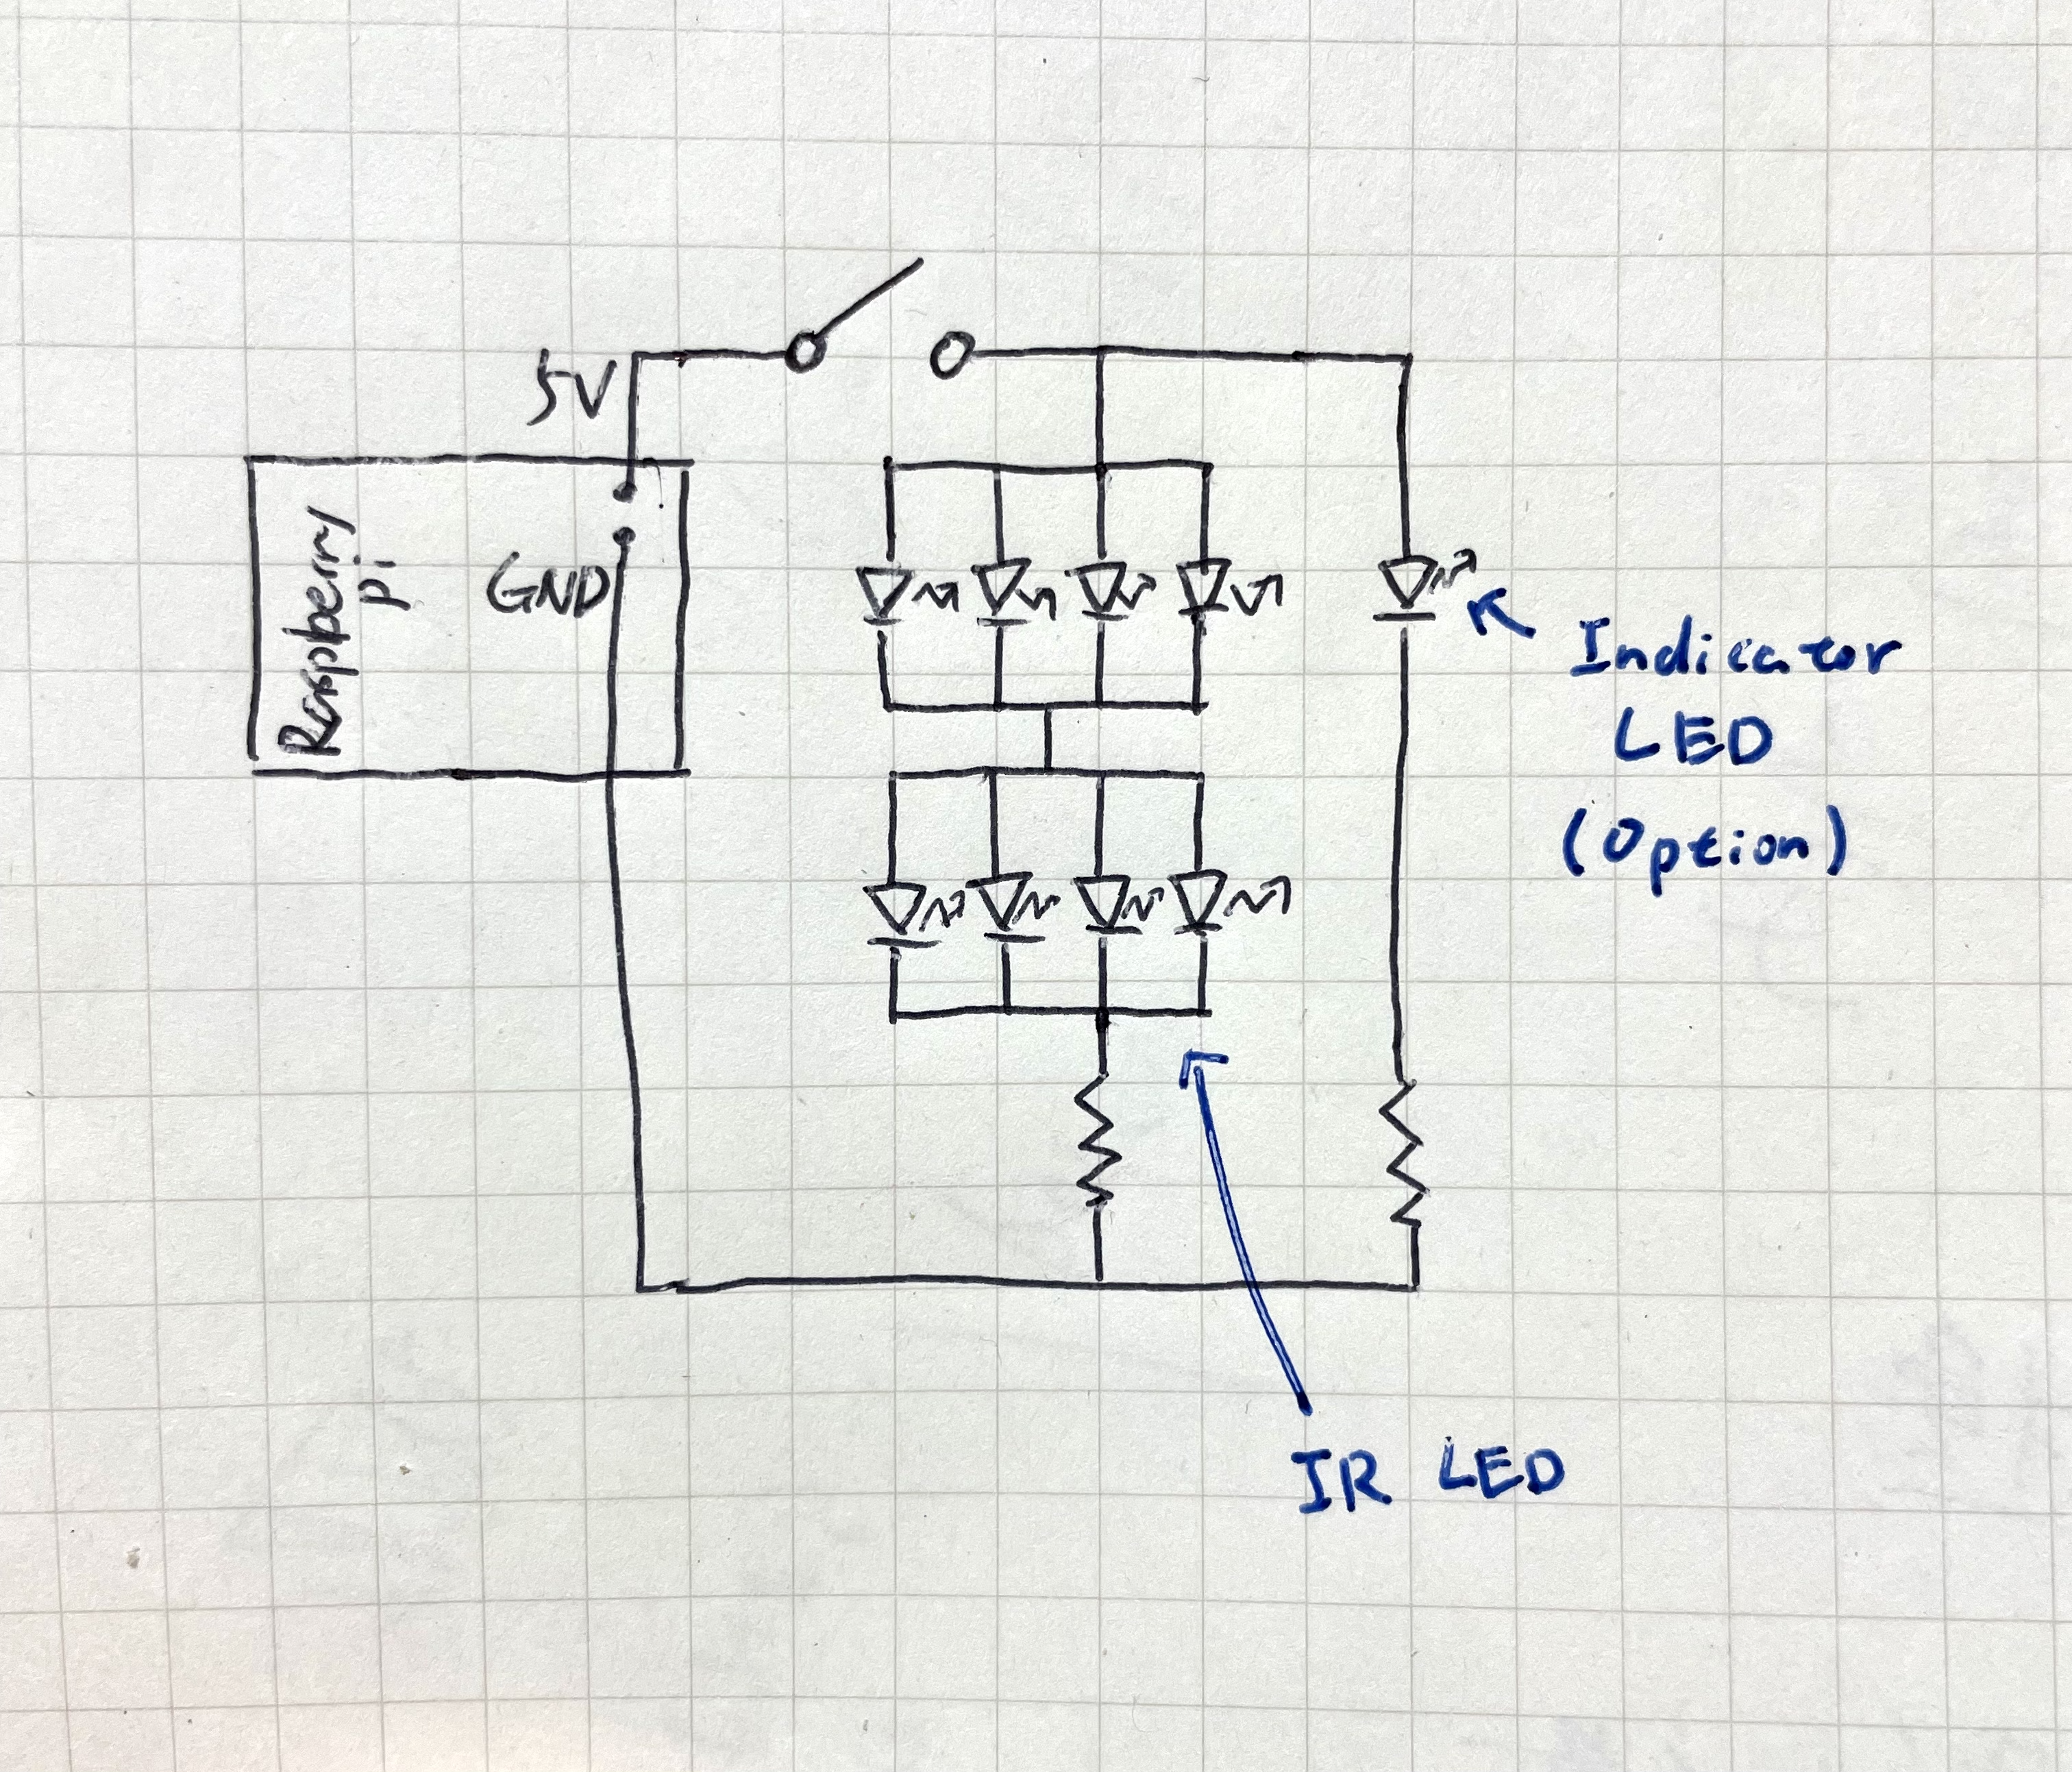 5V
Raspberry
Pi
GND
Indicator
LED
(Option)
IR LED